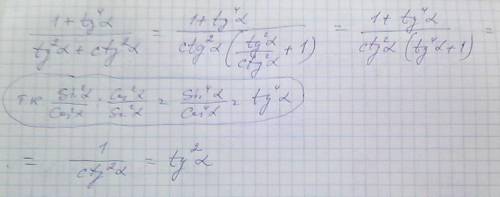 (1 + tg⁴α)/(tg²α + ctg²α) = (1 + tg⁴α)/(ctg²α (tg²α/ctg²α + 1)) = (1 + tg⁴α)/(ctg²α (tg⁴α + 1)) =
тк Sin²α/Cos²α · Cos²α/Sin²α = Sin⁴α/Cos⁴α = tg⁴α
= 1/ctg²α = tg²α